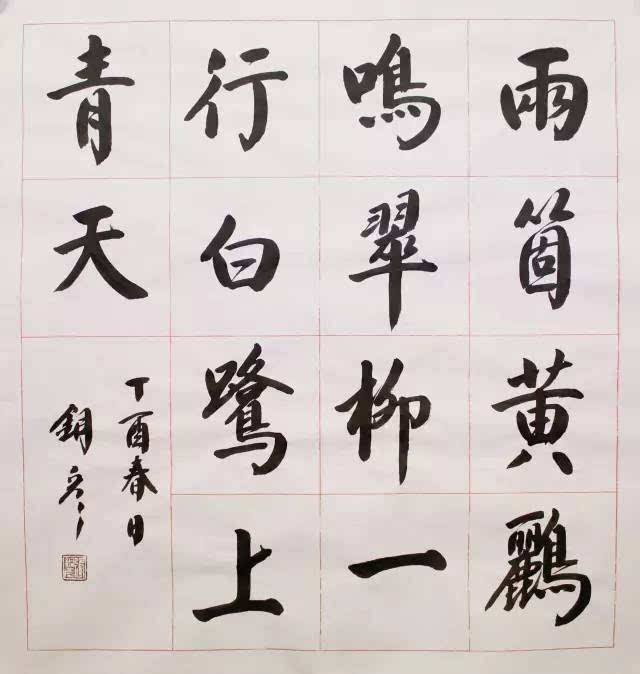 兩箇黄鸝
鳴翠柳一
行白鷺上
青天
丁酉春日